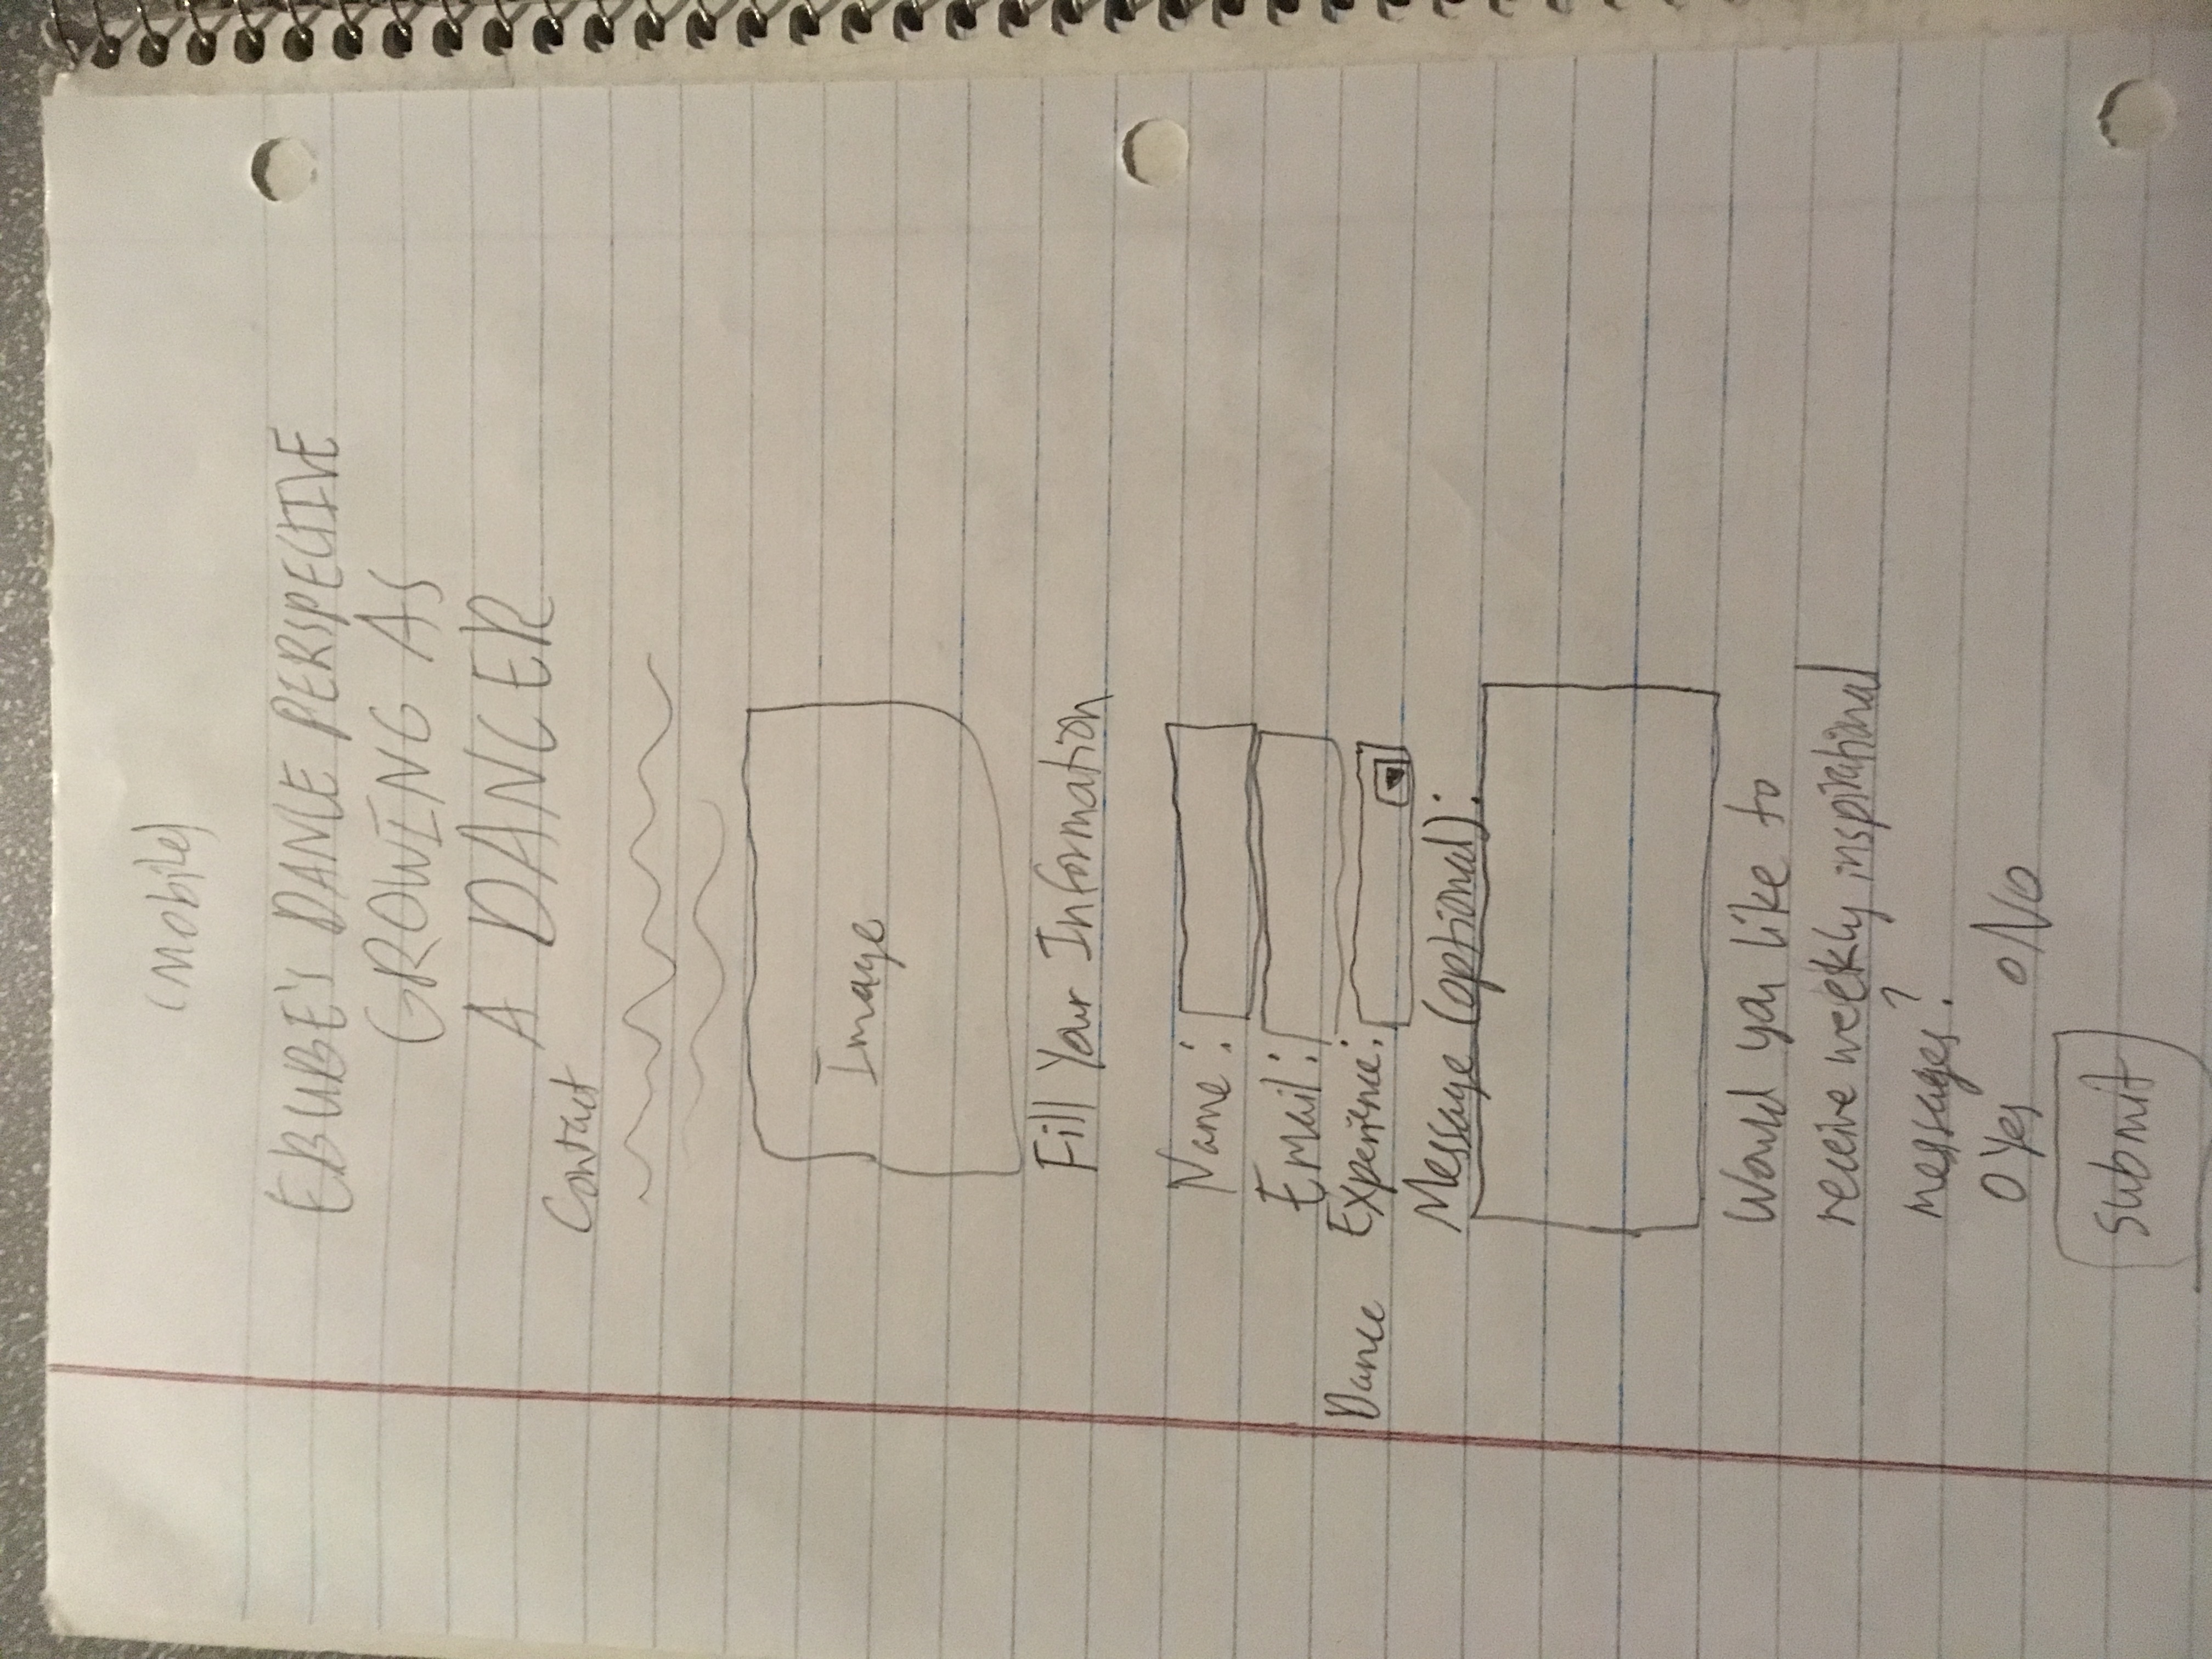 (Mobile)
EBUBE'S DANCE PERSPECTIVE
GROWING AS
A DANCER
Contact
Image
Fill Your Information
Name:
Email:
Dance Experience:
Message (optional):
Would you like to
receive weekly inspirational
messages?
O Yes o No
Submit